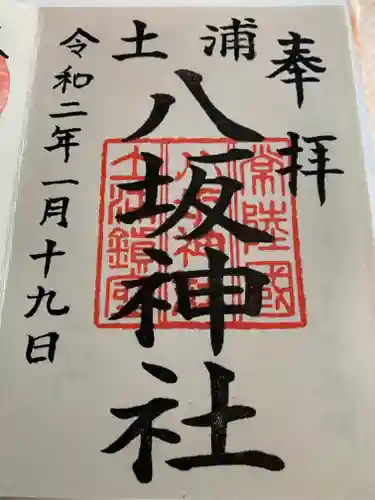 奉拝
土浦
八坂神社
令和二年一月十九日
常陸國
八坂神社
土浦鎮守